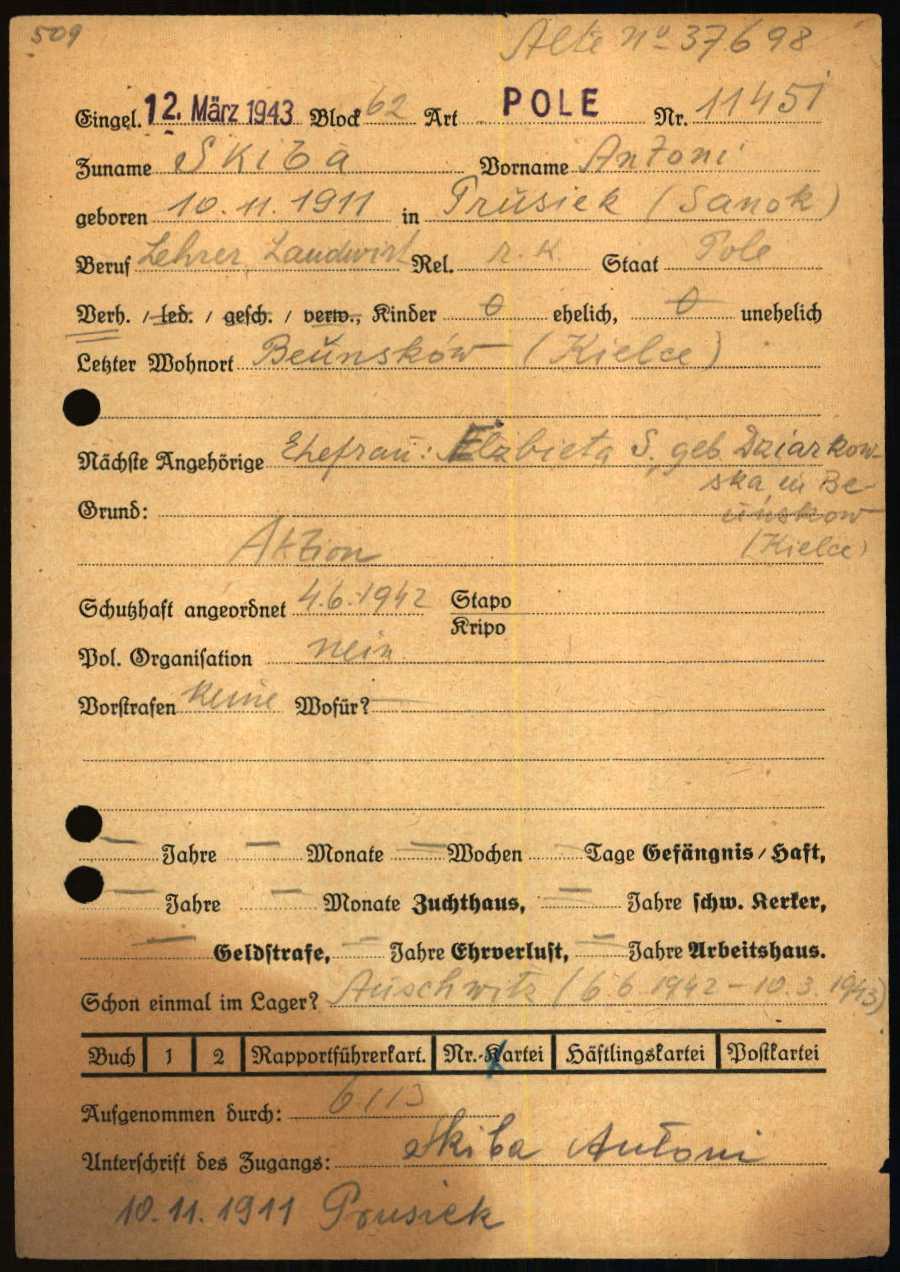 509
Alte No 37698
Eingel. 12. März 1943 Block 62 Art POLE Nr. 11451
Zuname Skiba Vorname Antoni
geboren 10.11.1911 in Prŭsiek (Sanok)
Beruf Lehrer, Landwirt Rel. r.K. Staat Pole
Verh. / led. / gesch. / verw., Kinder 0 ehelich, 0 unehelich
Letzter Wohnort Beŭnsków (Kielce)
Nächste Angehörige Ehefraŭ: Elzbieta S. geb. Dziarkow-
ska in Be-
Grund: ŭnskow
Aktion (Kielce)
Schutzhaft angeordnet 4.6.1942 Stapo
Kripo
Pol. Organisation nein
Vorstrafen keine Wofür? —
— Jahre — Monate — Wochen — Tage Gefängnis / Haft,
— Jahre — Monate Zuchthaus, — Jahre schw. Kerker,
— Geldstrafe, — Jahre Ehrverlust, — Jahre Arbeitshaus.
Schon einmal im Lager? Aŭschwitz (6.6.1942 – 10.3.1943)
Buch 1 2 Rapportführerkart. Nr.-Kartei Häftlingskartei Postkartei
Aufgenommen durch: 6113
Unterschrift des Zugangs: Skiba Antoni
10.11.1911 Prusiek